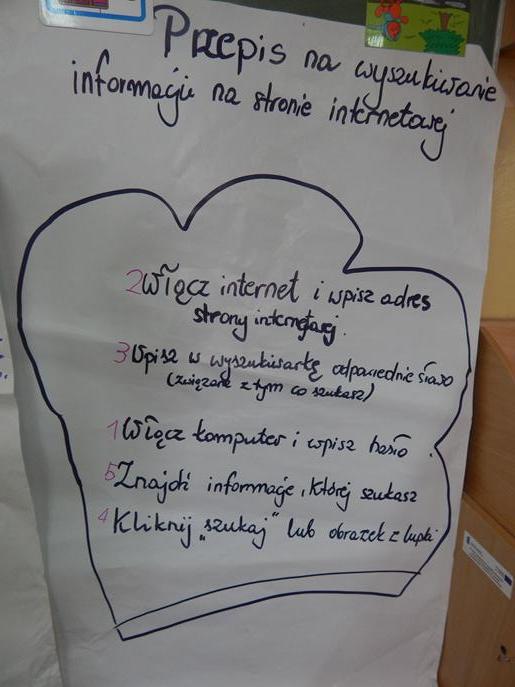 Przepis na wyszukiwanie
informacji na stronie internetowej
2 Włącz internet i wpisz adres
strony internetowej.
3 Wpisz w wyszukiwarkę odpowiednie słowo
(związane z tym co szukasz)
1 Włącz komputer i wpisz hasło.
5 Znajdź informację, której szukasz
4 Kliknij „szukaj" lub obrazek z lupki